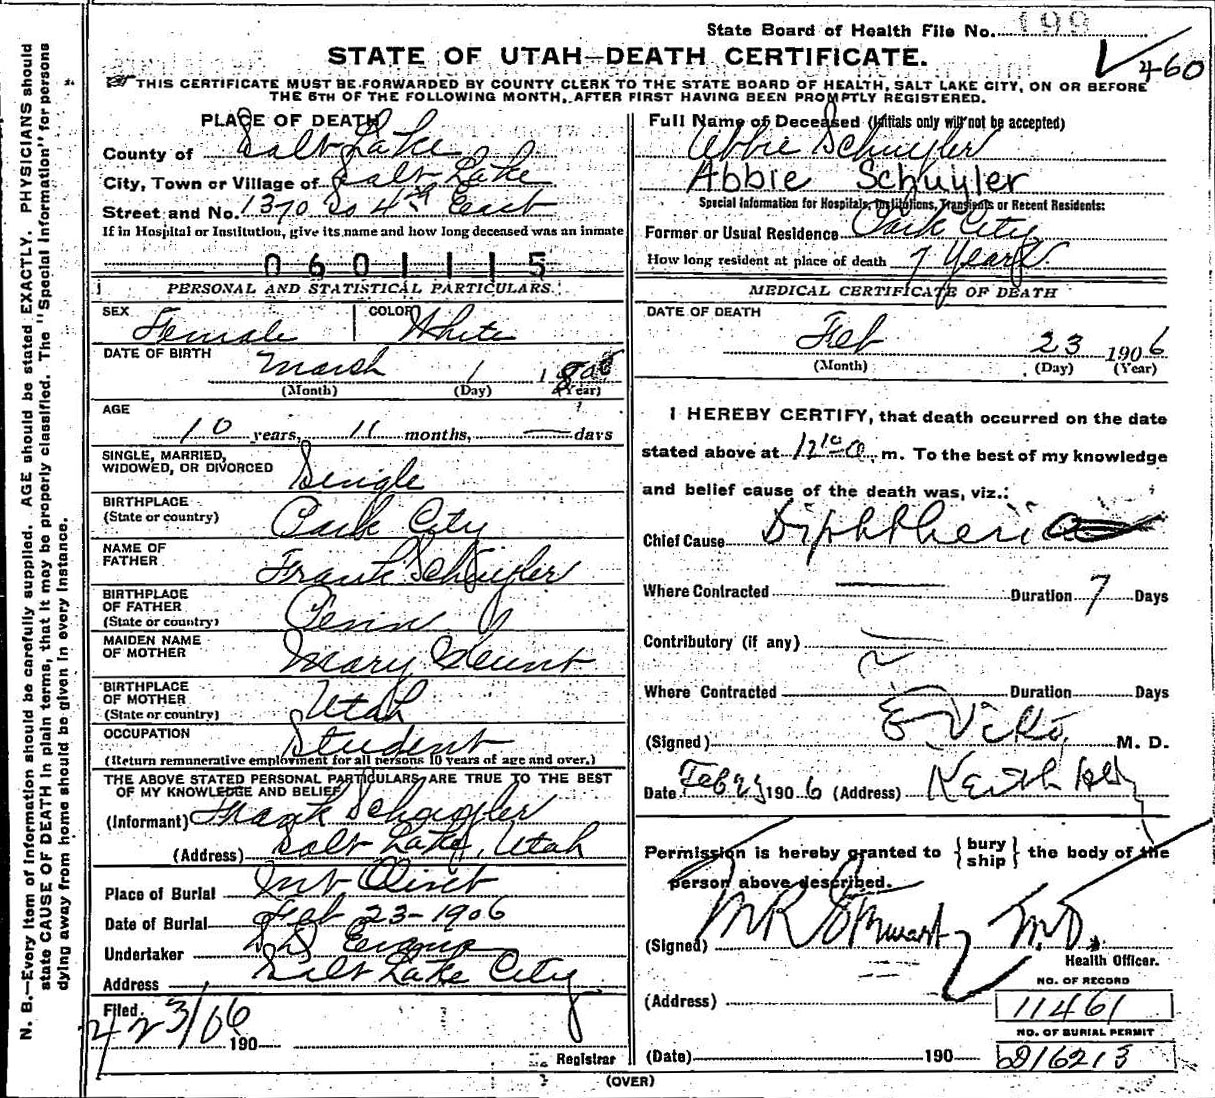 State Board of Health File No. 199
460
STATE OF UTAH—DEATH CERTIFICATE.
THIS CERTIFICATE MUST BE FORWARDED BY COUNTY CLERK TO THE STATE BOARD OF HEALTH, SALT LAKE CITY, ON OR BEFORE
THE 5TH OF THE FOLLOWING MONTH, AFTER FIRST HAVING BEEN PROMPTLY REGISTERED.
N. B.—Every item of information should be carefully supplied. AGE should be stated EXACTLY. PHYSICIANS should
state CAUSE OF DEATH in plain terms, that it may be properly classified. The "Special Information" for persons
dying away from home should be given in every instance.
PLACE OF DEATH
County of Salt Lake
City, Town or Village of Salt Lake
Street and No. 1370 So 4th East
If in Hospital or Institution, give its name and how long deceased was an inmate
0601115
PERSONAL AND STATISTICAL PARTICULARS.
SEX Female COLOR White
DATE OF BIRTH March 1
(Month) (Day) (Year)
AGE
10 years, 11 months, — days
SINGLE, MARRIED,
WIDOWED, OR DIVORCED Single
BIRTHPLACE
(State or country) Park City
NAME OF
FATHER Frank Schuyler
BIRTHPLACE
OF FATHER
(State or country) Penn
MAIDEN NAME
OF MOTHER Mary Hunt
BIRTHPLACE
OF MOTHER
(State or country) Utah
OCCUPATION Student
(Return remunerative employment for all persons 10 years of age and over.)
THE ABOVE STATED PERSONAL PARTICULARS ARE TRUE TO THE BEST
OF MY KNOWLEDGE AND BELIEF
(Informant) Frank Schuyler
(Address) Salt Lake, Utah
Place of Burial Mt Olivet
Date of Burial Feb 23-1906
Undertaker Evans
Address Salt Lake City
Filed
2/23/06 190
Registrar
Full Name of Deceased (Initials only will not be accepted)
Abbie Schuyler
Abbie Schuyler
Special Information for Hospitals, Institutions, Transients or Recent Residents:
Former or Usual Residence Park City
How long resident at place of death 7 Years
MEDICAL CERTIFICATE OF DEATH
DATE OF DEATH
Feb 23 1906
(Month) (Day) (Year)
I HEREBY CERTIFY, that death occurred on the date
stated above at 12 10 a. m. To the best of my knowledge
and belief cause of the death was, viz.:
Chief Cause Diphtheria
Where Contracted Duration 7 Days
Contributory (if any)
Where Contracted Duration Days
(Signed) M. D.
Date Feb 23 1906 (Address) Keith
Permission is hereby granted to {bury ship} the body of the
person above described.
(Signed) M R Stewart M.D.
Health Officer.
(Address)
NO. OF RECORD
11461
NO. OF BURIAL PERMIT
(Date) 190
(OVER)